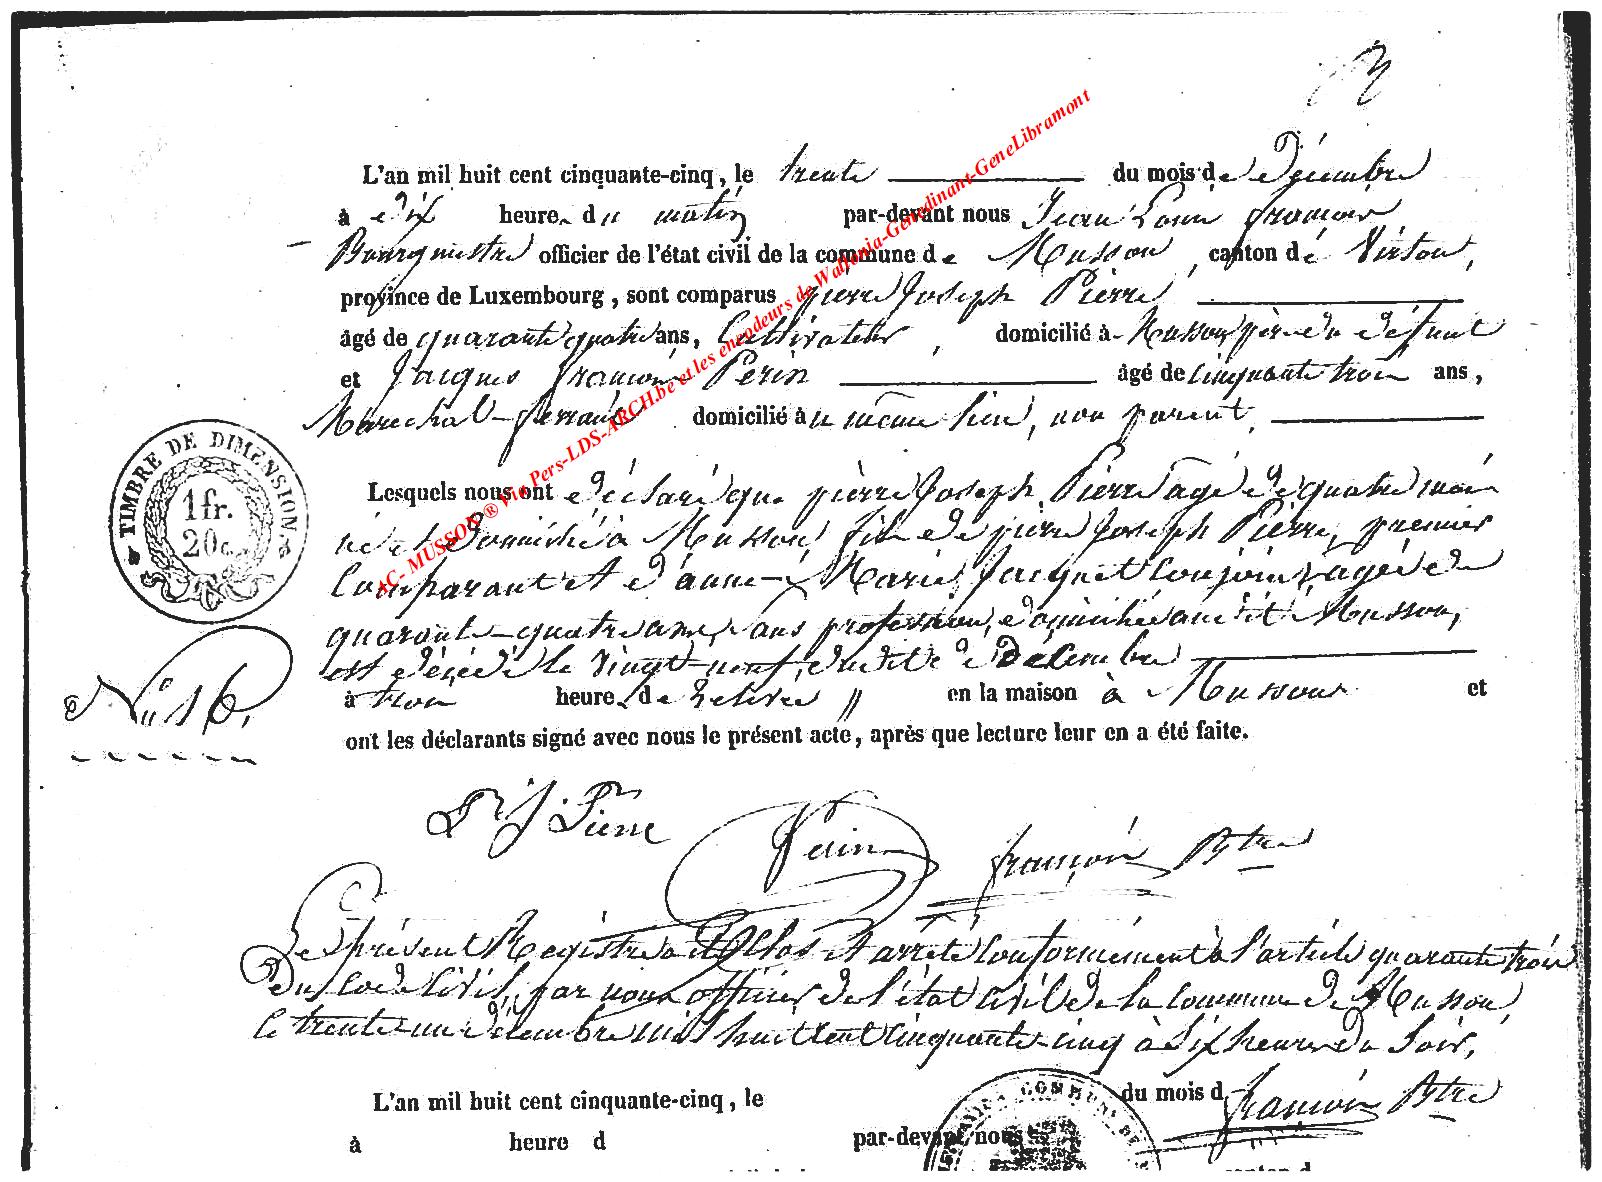 3
L'an mil huit cent cinquante-cinq, le trente du mois de Décembre
à dix heures du matin par-devant nous Jean Louis françois
Bourgmestre officier de l'état civil de la commune de Musson, canton de Virton,
province de Luxembourg, sont comparus pierre Joseph Pierre
âgé de quarante quatre ans, Cultivateur, domicilié à Musson père du défunt
et Jacques françois Perin âgé de cinquante trois ans,
Marechal-ferrant domicilié au même lieu, non parent,
Lesquels nous ont déclaré que pierre Joseph Pierre âgé de quatre mois
né et domicilié à Musson, fils de pierre Joseph Pierre, premier
Comparant et d'anne-Marie Jacquet Conjoints, agée de
quarante-quatre ans, sans profession, domiciliée audit Musson,
est décédé le vingt-neuf, dudit de Décembre
à trois heures de relevée " en la maison à Musson et
ont les déclarants signé avec nous le présent acte, après que lecture leur en a été faite.
TIMBRE DE DIMENSION
1 fr.
20 c.
N° 16.
Pr J. Pierre Perin françois Bgtre
Le présent Registre a été Clos et arrêté Conformément à l'article quarante trois
Du Code Civil, par nous officier de l'état Civil de la Commune de Musson,
le trente-un décembre mil huit cent cinquante-cinq à Six heures du Soir,
françois Bgtre
L'an mil huit cent cinquante-cinq, le du mois d
à heure d par-devant nous
canton d
AC- MUSSON ® Via Pers-LDS-ARCH.be et les encodeurs de Wallonia-Genedinant-GeneLibramont